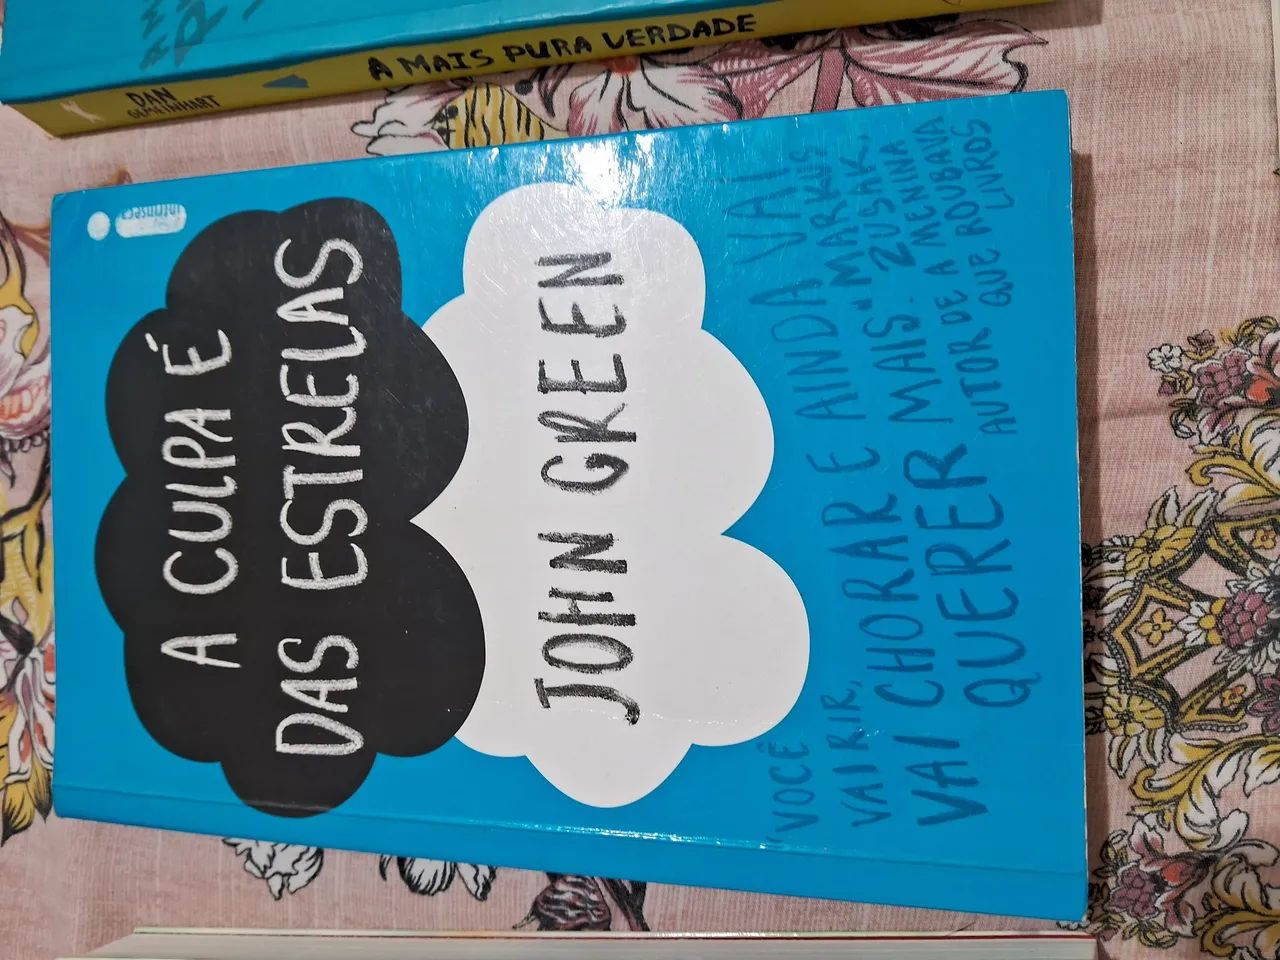 A CULPA É
DAS ESTRELAS
JOHN GREEN
"VOCÊ
VAI RIR,
VAI CHORAR E AINDA VAI
QUERER MAIS". MARKUS
ZUSAK,
AUTOR DE A MENINA
QUE ROUBAVA
LIVROS
intrínseca
DAN
GEMEINHART
A MAIS PURA VERDADE